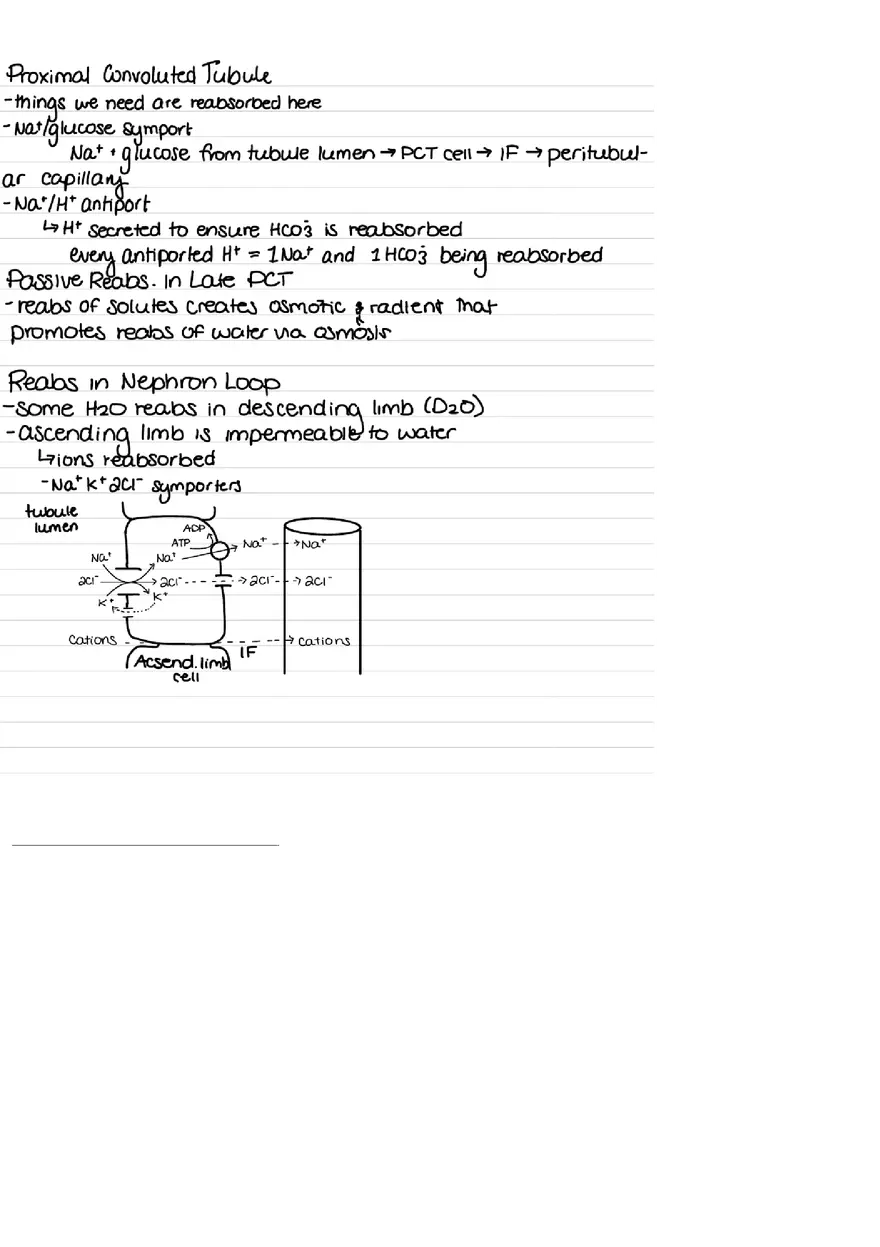 Proximal Convoluted Tubule
-things we need are reabsorbed here
-Na+/glucose symport
Na+ + glucose from tubule lumen → PCT cell → IF → peritubul-
ar capillary
-Na+/H+ antiport
↳ H+ secreted to ensure HCO3- is reabsorbed
every antiported H+ = 1Na+ and 1HCO3- being reabsorbed
Passive Reabs. in Late PCT
-reabs of solutes creates osmotic gradient that
promotes reabs of water via osmosis
Reabs in Nephron Loop
-some H2O reabs in descending limb (D2O)
-ascending limb is impermeable to water
↳ ions reabsorbed
-Na+ K+ 2Cl- symporters
tubule
lumen
ADP
ATP
Na+ Na+ Na+ → Na+
2Cl- → 2Cl- → 2Cl- → 2Cl-
K+ K+
Cations → Cations
IF
Acsend. limb
cell